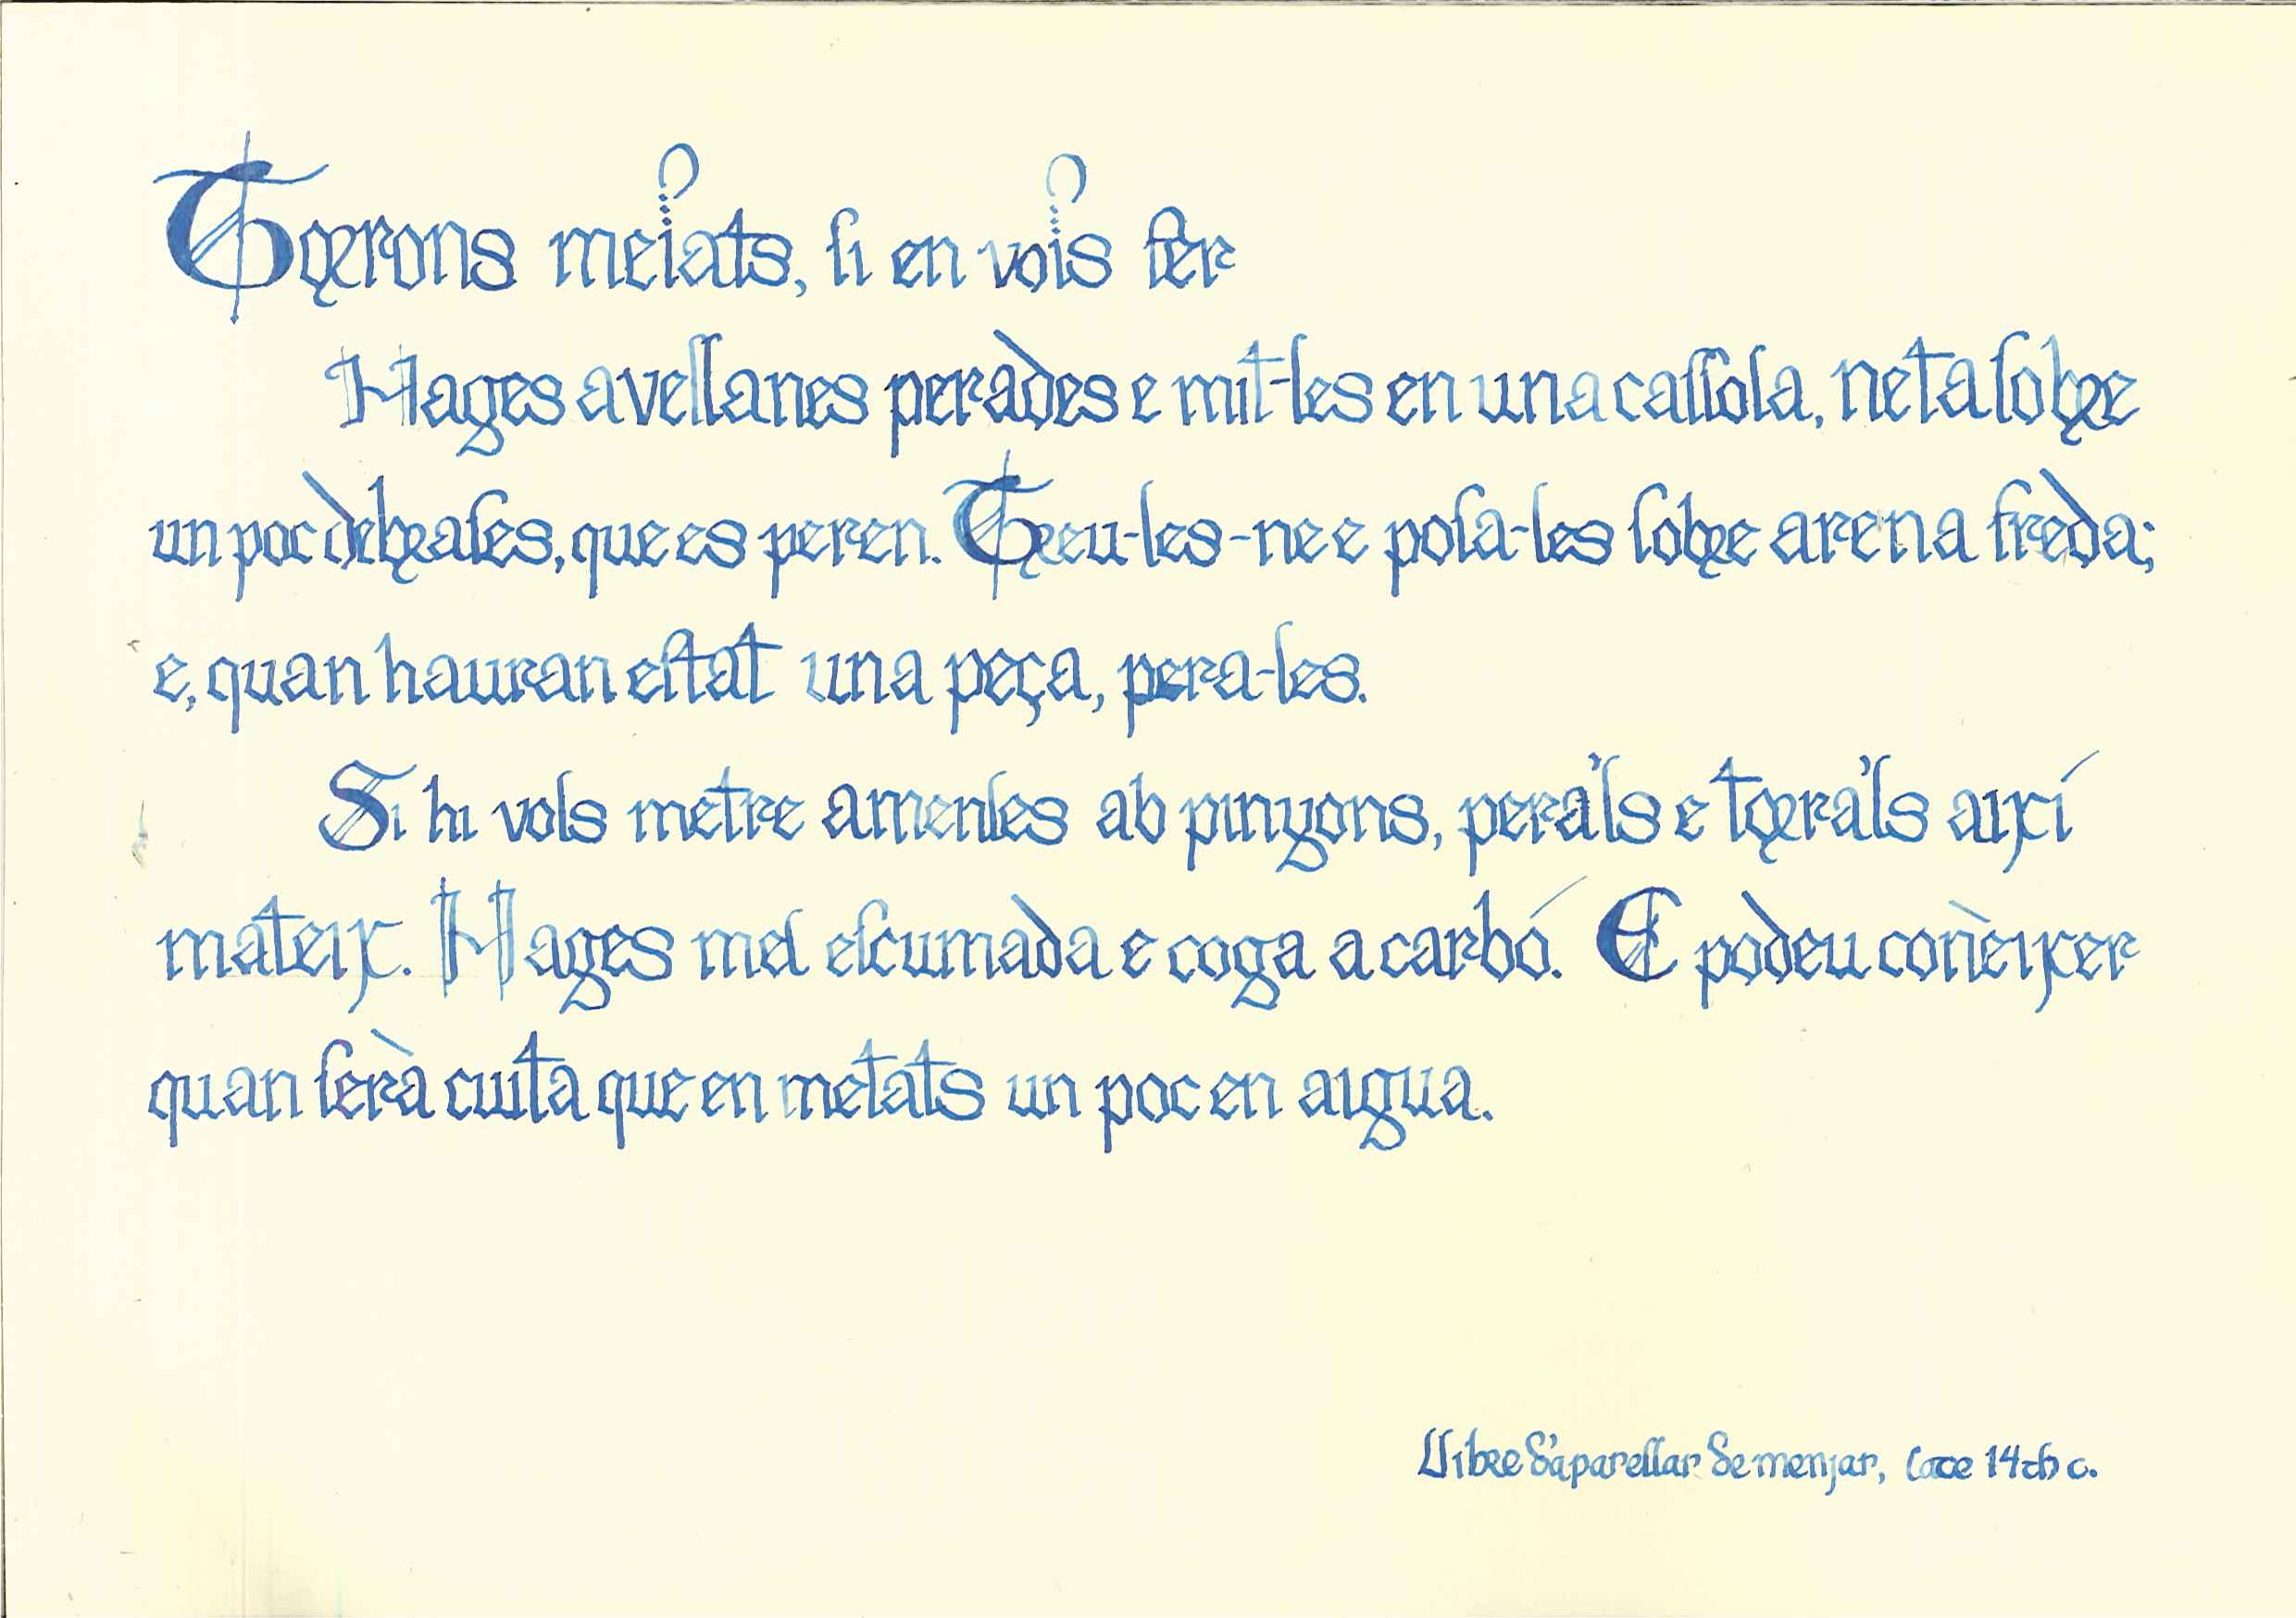 Torrons melats, ſi en vols fer
Hages avellanes perades e mit-les en una caſſola, neta ſobre
un poc de braſes, que es peren. Treu-les-ne e poſa-les ſobre arena freda;
e, quan hauran eſtat una peça, pera-les.
Si hi vols metre amenles ab pinyons, pera'ls e torra'ls així
mateix. Hages mel eſcumada e coga a carbó. E podeu conèixer
quan ſerà cuita que en metats un poc en aigua.
Llibre d'aparellar de menjar, late 14th c.